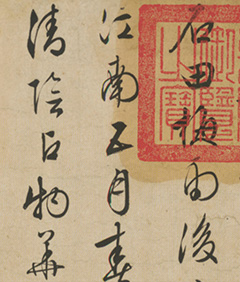 石田梅雨後
江南五月
清陰占物華